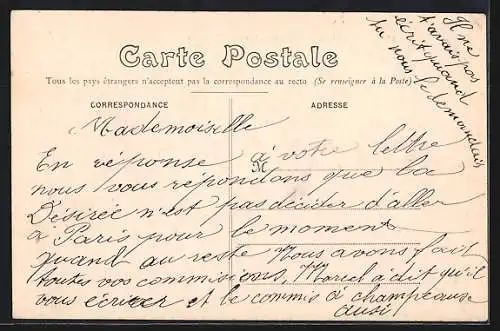 Carte Postale
Tous les pays étrangers n'acceptent pas la correspondance au recto (Se renseigner à la Poste)
CORRESPONDANCE
ADRESSE
Il ne
t'avais pas
écrit quand
tu nous le demandais
Mademoiselle
En réponse à votre lettre
M
nous vous répondons que la
Désirée n'est pas décider d'aller
à Paris pour le moment
quand au reste Nous avons fait
toutes vos commisions, Marcel a dit qu'il
vous écrirer et le commis à champeause
ausi